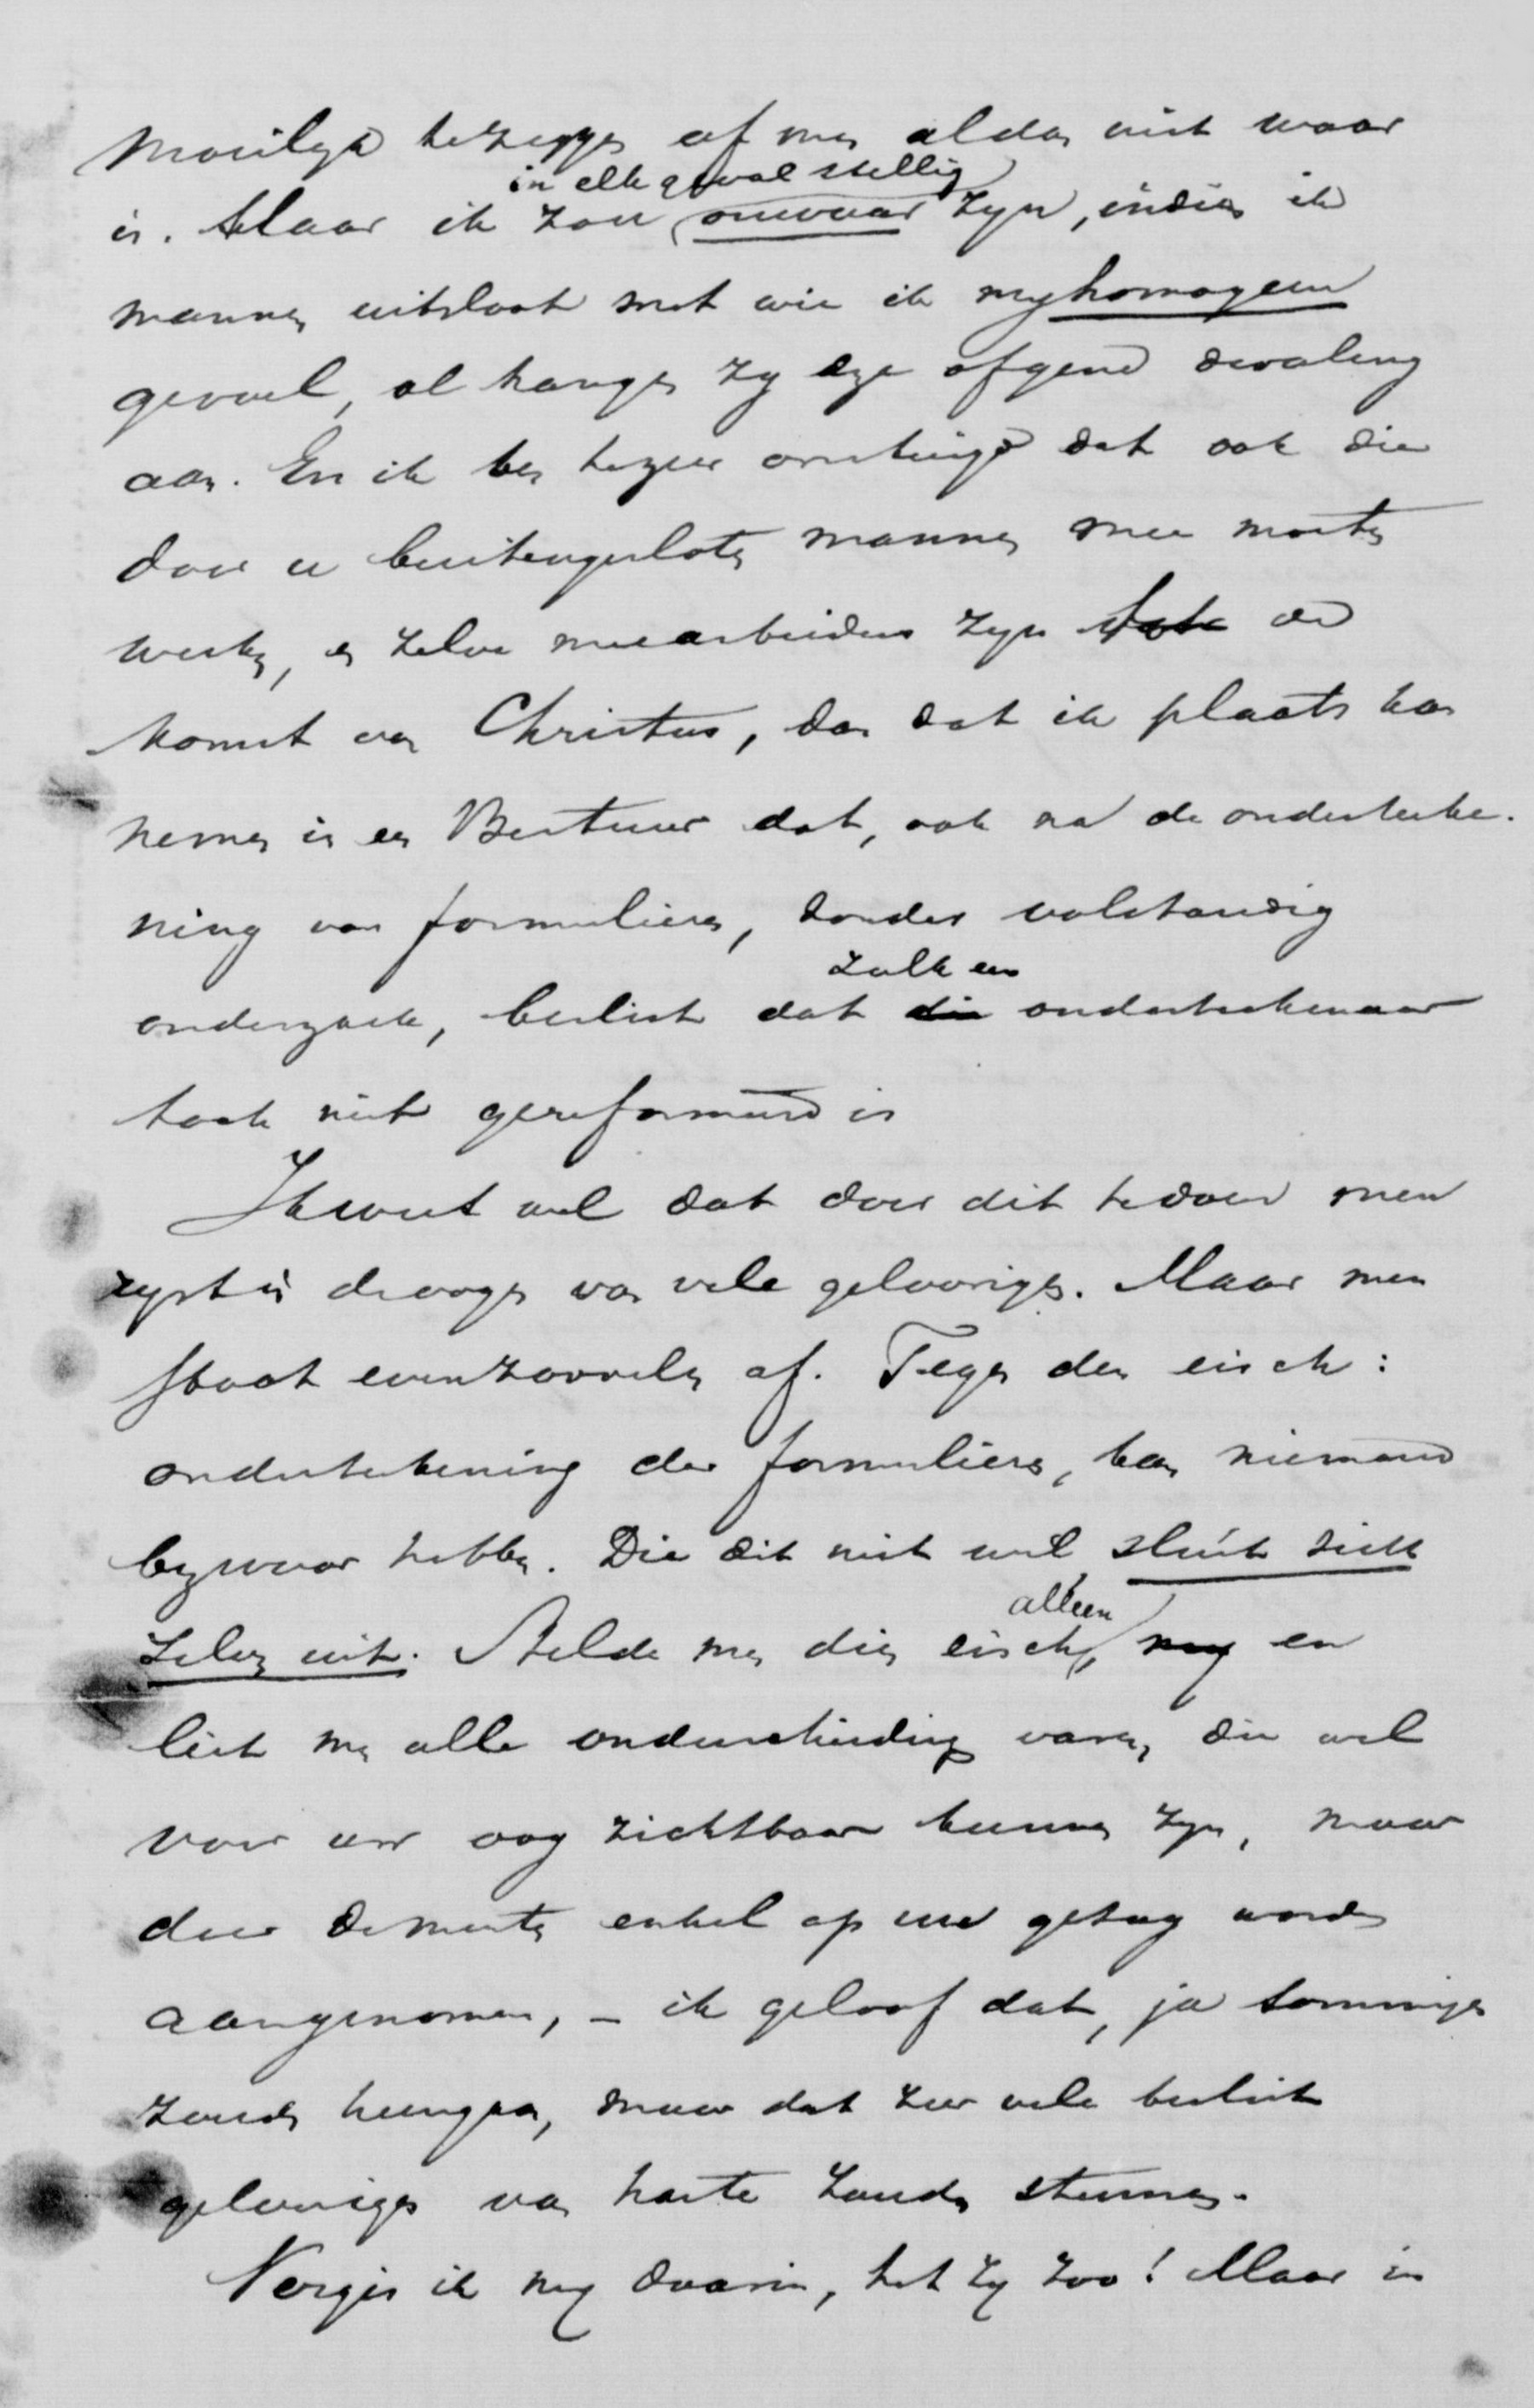 moeilijk te zeggen of men al dan niet waar
in elk geval stellig
is. Maar ik zou onwaar zyn, indien ik
mannen uitsloot met wie ik my homogeen
gevoel, al hangen zy deze of gene dwaling
aan. En ik ben te zeer overtuigd dat ook die
door u buitengesloten mannen mee moeten
werken, en zelve meearbeiders zyn de
komst van Christus, dan dat ik plaats kan
nemen in een Bestuur dat, ook na de onderteeke-
ning van formulieren, zonder volstandig
zulk een
onderzoek, beslist dat die onderteekenaar
toch niet gereformeerd is
Ik weet wel dat door dit te doen men
ryst in de oogen van vele geloovigen. Maar men
stoot evenzoovelen af. Tegen den eisch:
onderteekening der formulieren, kan niemand
bezwaar hebben. Die dit niet wil sluit zich
alleen
zelven uit. Stelde men dien eisch, en
liet men alle onderscheiding varen, die wel
voor uw oog zichtbaar kunnen zyn, maar
door de meesten enkel op uw gezag worden
aangenomen, – ik geloof dat, ja sommigen
zouden heengaan, maar dat zeer vele beslist
geloovigen van harte zouden steunen.
Vergis ik my daarin, het zy zoo! Maar in